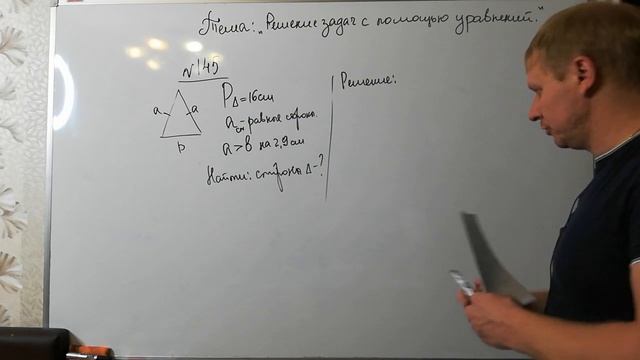 Тема: „Решение задач с помощью уравнений."
N145
a a
b
P△=16см
a - равные стороны.
a>b на 2,9см
Найти: стороны △-?
Решение: